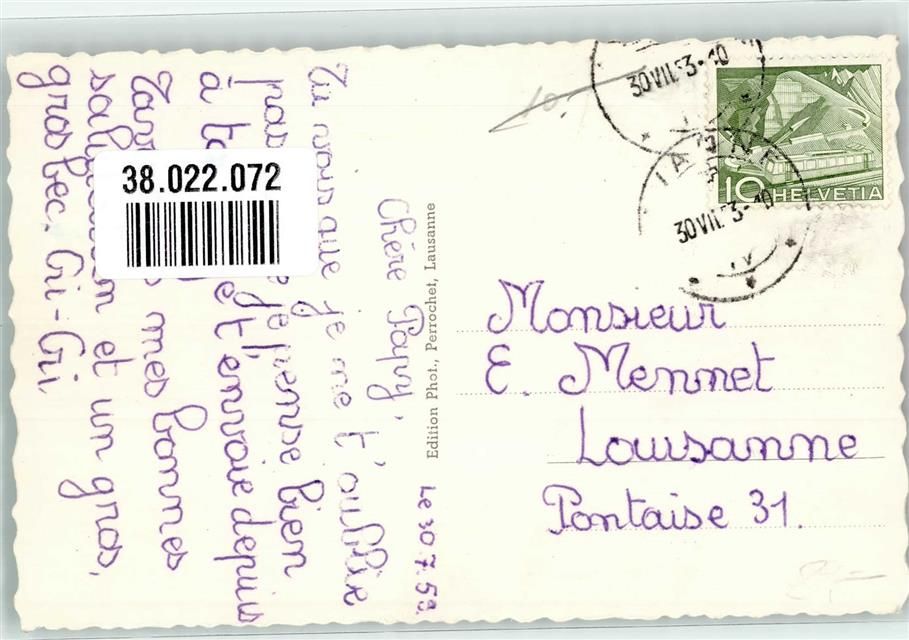 Le 30.7.53.
Chère Papy,
Tu vois que je ne t'oublie
pas je pense bien
à t'envoie depuis
mes bonnes
et un gros,
gros bec. Gi-Gi
38.022.072
Edition Phot., Perrochet, Lausanne
10.
30 VII. 53-10
30 VII. 53-10
10 HELVETIA
Monsieur
E. Mennet
Lousanne
Pontaise 31.